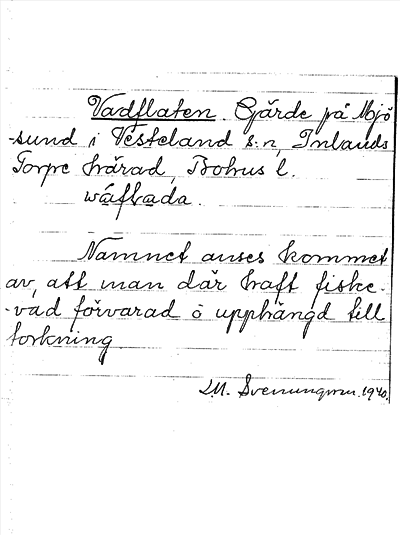 Vadflaten. Gärde på Mjö-
-sund i Vesteland s:n, Inlands
Torpe härad, Bohus l.
wáflada.
Namnet anses kommet
av, att man där haft fiske-
-vad förvarad o upphängd till
torkning
J.M. Svenungsson. 1940.